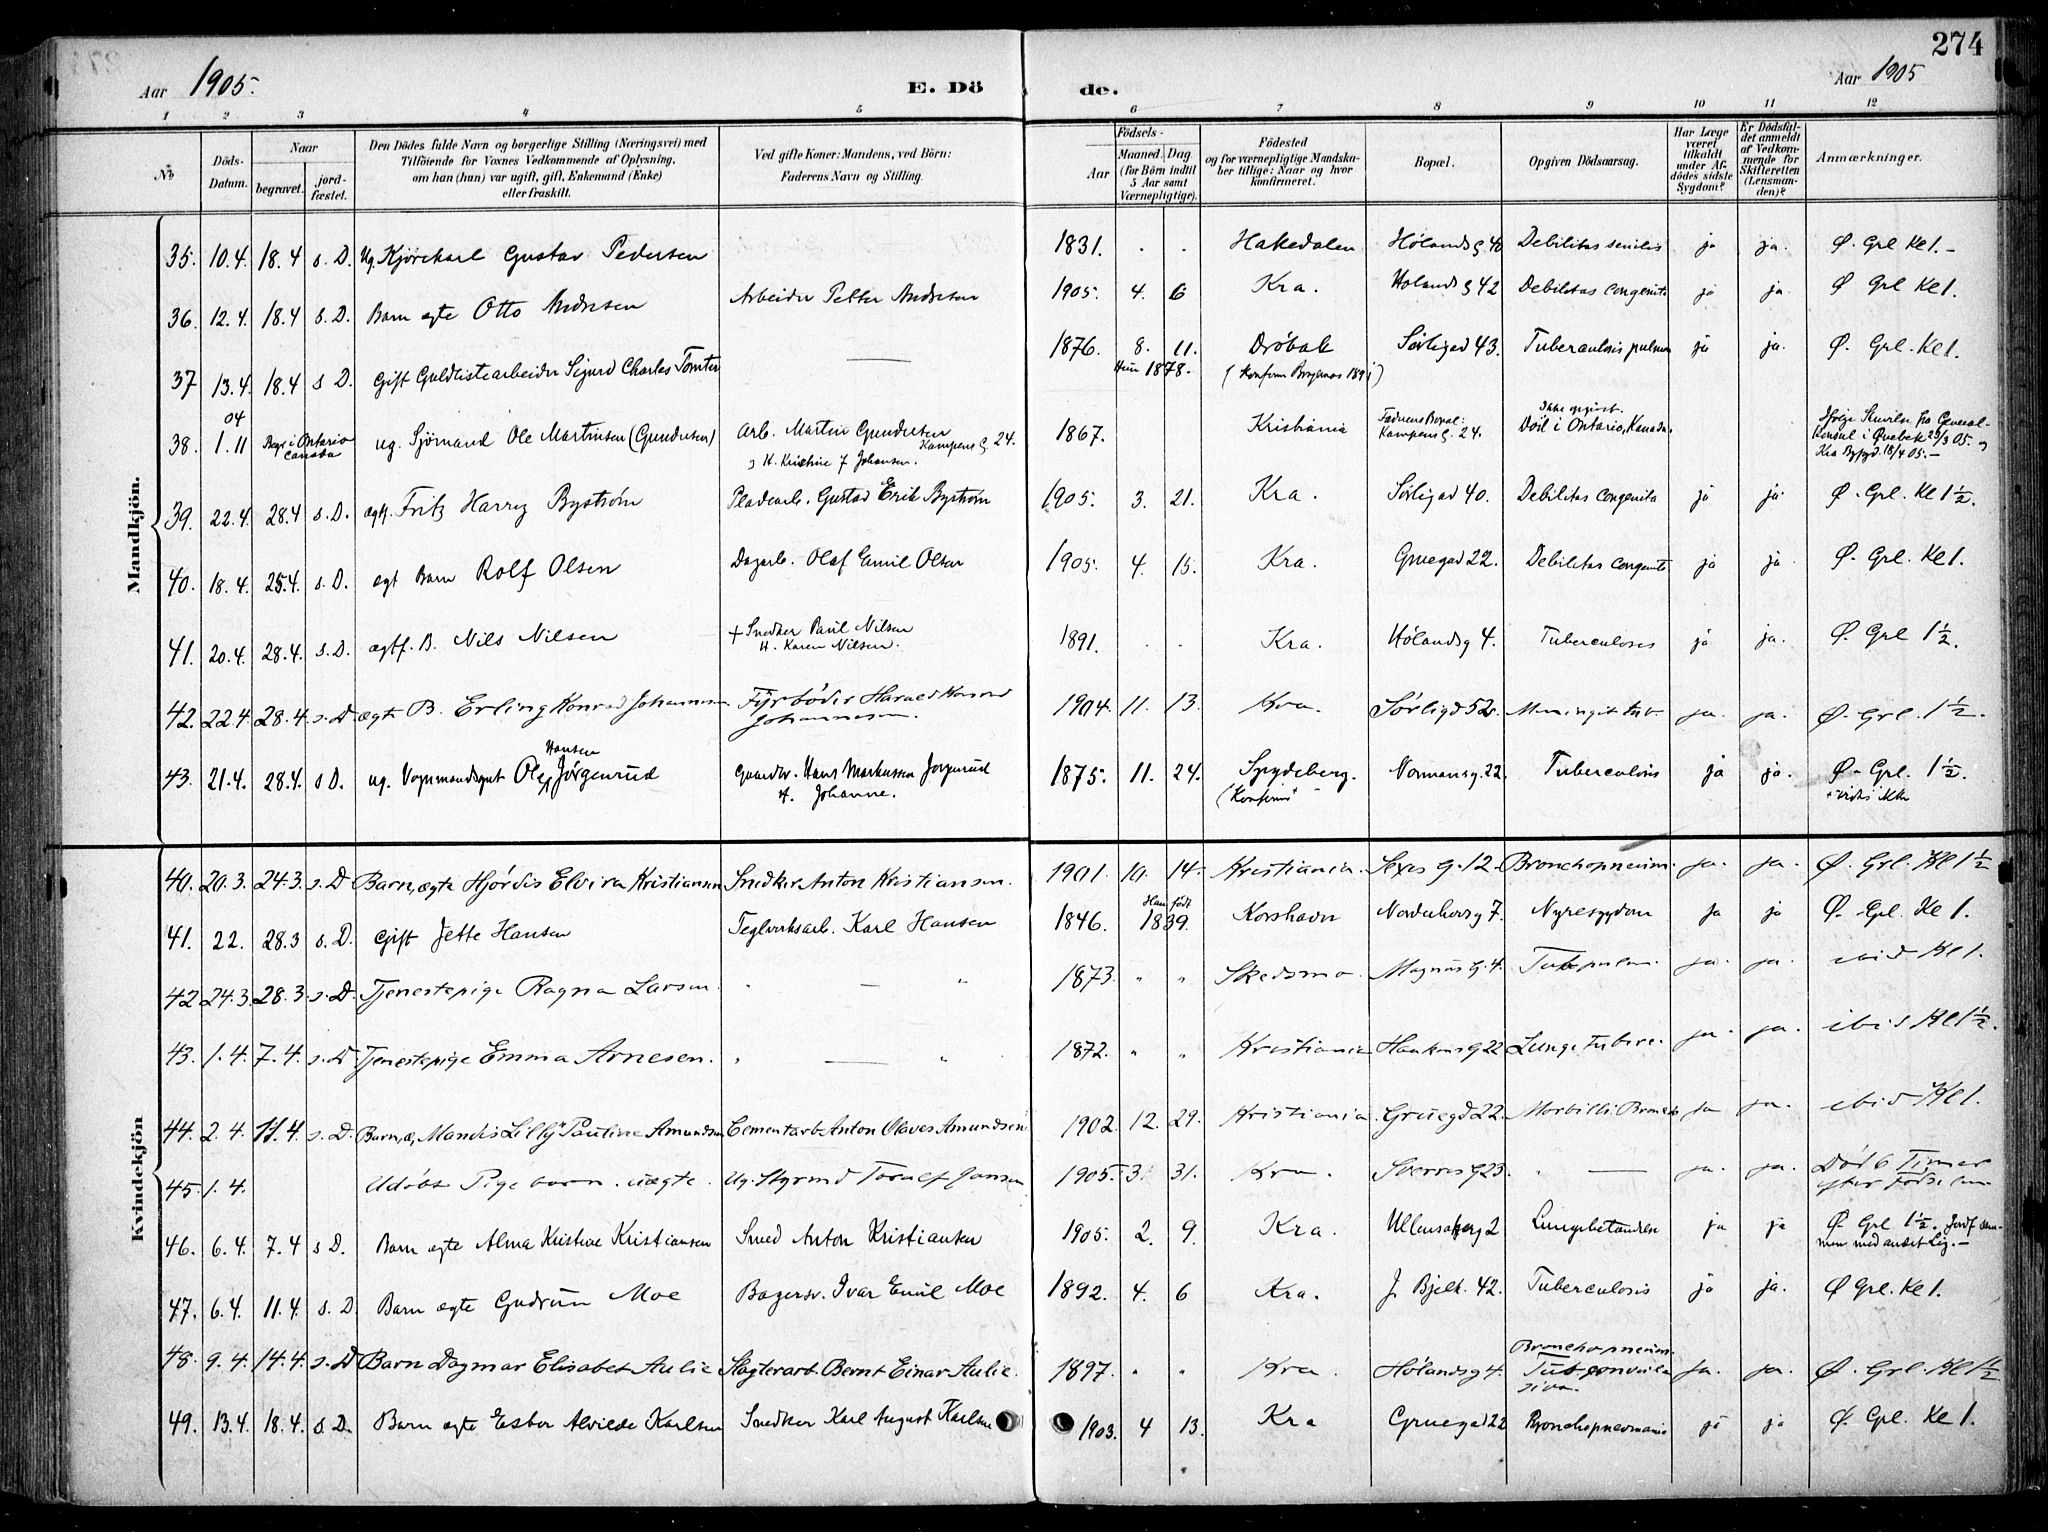 274
Aar 1905.
E. Dö de.
Aar 1905
1 2 3 4 5 6 7 8 9 10 11 12
No
Döds-Datum.
Naar
begravet.
jord-fæstet.
Den Dödes fulde Navn og borgerlige Stilling (Næringsvei) med
Tilföiende for Voxnes Vedkommende af Oplysning,
om han (hun) var ugift, gift, Enkemand (Enke)
eller fraskilt.
Ved gifte Koner: Mandens, ved Börn:
Faderens Navn og Stilling.
Födsels-
Aar
Maaned. Dag
(for Börn indtil
5 Aar samt
Værnepligtige).
Födested
og for værnepligtige Mandska-
ber tillige: Naar og hvor
konfirmeret.
Bopæl.
Opgiven Dödsaarsag.
Har Læge
været
tilkaldt
under Af-
dödes sidste
Sygdom?
Er Dödsfal-
det anmeldt
af Vedkom-
mende for
Skifteretten
(Lensman-
den)?
Anmærkninger.
Mandkjön.
35. 10.4. 18.4 s. D. Ug. Kjörekarl Gustav Pedersen 1831. . . Hakedalen Hølandsg 40 Debilitas senilis ja ja. Ø. Grl Kl 1.-
36. 12.4. 18.4 s. D. Barn ægte Otto Andresen Arbeider Petter Andresen 1905. 4. 6 Kra. Holandsg 42 Debilitas congenita ja ja. Ø Grl Kl 1.
37 13.4. 18.4 s D. Gift Guldlistearbeider Sigurd Charles Tomter — 1876. 8. 11. Drøbak Sørligad 43. Tuberculosis pulmon ja ja. Ø. Grl. Kl 1.
1878. (Konfirm
04
38. 1.11 Begr i Ontario Canada ug. Sjømand Ole Martinsen (Gundersen) Arb. Martin Gundersen Kampens G. 24. 1867. Kristiania Faderens Bopæl: Kampens G. 24. Ikke opgivet. Död i Ontario, Kanada.
H. Kristine f Johansen.
Ifølge Skrivelse fra General-
Konsul i Quebek 23/3 05. og
Kra 18/4 05.-
39. 22.4. 28.4 s. D. ægtf. Fritz Harry Bystrøm Pladearb. Gustav Erik Bystrøm 1905. 3. 21. Kra. Sørligad 40. Debilitas congenita ja ja. Ø. Grl. Kl 1½.
40. 18.4. 25.4. s. D. ægt Barn Rolf Olsen Dagarb. Olaf Emil Olsen 1905. 4. 15. Kra. Gruegad 22. Debilitas congenita ja ja. Ø. Grl. Kl 1.
41. 20.4. 28.4. s. D. ægtf. B. Nils Nilsen + Snedker Paul Nilsen 1891. . . Kra. Hølandsg 4. Tuberculosis ja ja. Ø. Grl 1½.
H. Karen Nilsen.
42. 22.4. 28.4. s. D. ægte B. Erling Konrad Johannesen Fyrbøder Harald Konrad Johannesen. 1904. 11. 13. Kra. Sørligd 52. Meningit tub. ja. ja. Ø. Grl. 1½.
43. 21.4. 28.4. s D. ug. Vognmandsgut Ole Hansen Jørgenrud Gaardbr. Hans Markussen Jørgenrud 1875. 11. 24. Spydeberg. Normansg. 22. Tuberculosis ja ja. Ø. Grl. 1½.
H. Johanne. (Konfirm
Kvindekjön
40. 20.3. 24.3. s. D Barn, ægte Hjørdis Elvira Kristiansen Snedker Anton Kristiansen. 1901. 10. 14. Kristiania. Sexes g. 12. Bronchopneum. ja. ja. Ø. Grl. Kl 1½
41. 22. 28.3 s. D. Gift Jette Hansen Teglverksarb. Karl Hansen 1846. Han født 1839. Korshavn Norderhovsg 7. Nyresygdom ja ja Ø. Grl. Kl 1.
42 24.3. 28.3 s. D. Tjenestepige Ragna Larsen. " — " 1873. " " Skedsmo. Magnus G. 4. Tub pulm. ja. ja. ibid Kl 1.
43. 1.4. 7.4. s. D Tjenestepige Emma Arnesen. " — " 1872. " " Kristiania Haukens G 22 Lunge tuberc. ja. ja. ibid Kl 1½.
44. 2.4. 11.4. s. D. Barn, æ, Mandis Lilly Pauline Amundsen Cementarb Anton Olaves Amundsen 1902. 12. 29. Kristiania. Gruegd 22. Morbilli. ja ja. ibid Kl 1.
45. 1.4. Udøbt Pigebarn. uægte. Ug. Styrmd Toralf Jansen 1905. 3. 31. Kra. Sverres G 23. " — ja. ja. Død 6 Timer efter Fødselen
46. 6.4. 7.4 s D. Barn ægte Alma Kristine Kristiansen Smed Anton Kristiansen 1905. 2. 9. Kra. Ullensakerg 2 Lungebetændelse ja ja Ø Grl 1½. Jordf sam-
men med andet Lig.-
47. 6.4. 11.4. s. D. Barn ægte Gudrun Moe Bagersv. Ivar Emil Moe 1892. 4. 6 Kra. J. Bjelk. 42. Tuberculosis ja ja. Ø Grl. Kl 1.
48. 9.4. 14.4. s. D Barn Dagmar Elisabet Aulie Slagterarb. Bernt Einar Aulie. 1897. " " Kra Hølandsg 4. Bronchopneum. ja. ja. Ø. Grl. Kl 1½
49. 13.4. 18.4. s. D. Barn ægte Ester Alvilde Karlsen Snedker Karl August Karlsen 1903. 4 13. Kra Gruegad 22 Bronchopneumonia ja ja Ø. Grl. Kl 1.